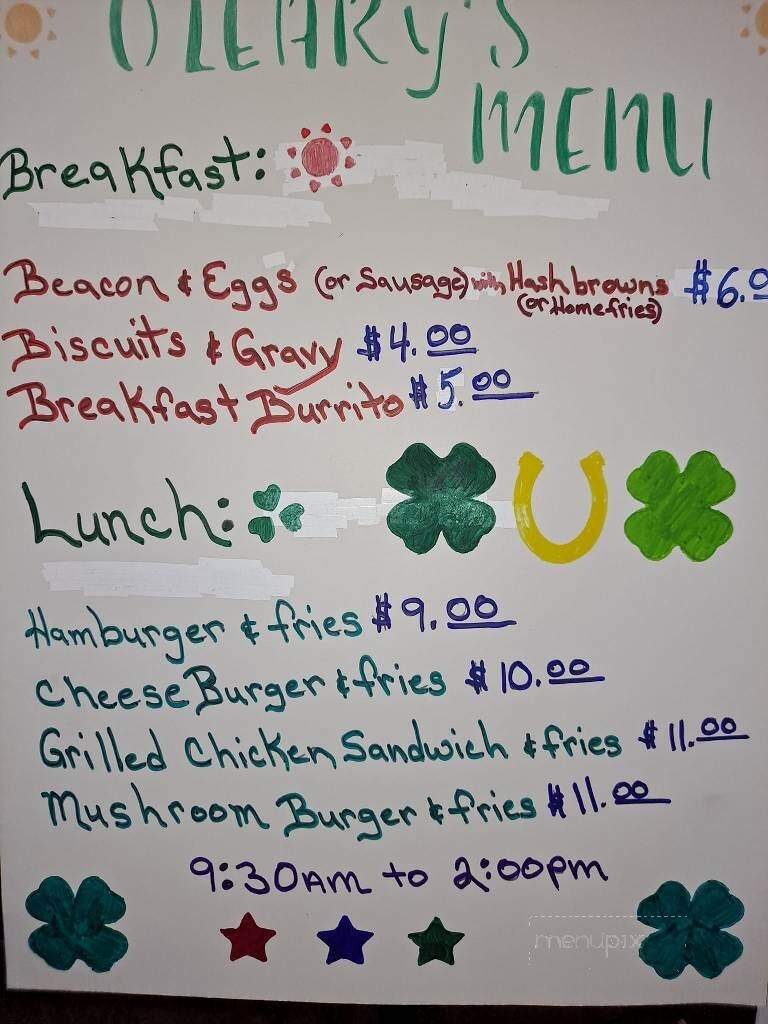 O'LEARY'S
MENU
Breakfast:
Beacon & Eggs (or Sausage) with Hashbrowns $6.0
(or Homefries)
Biscuits & Gravy $4.00
Breakfast Burrito $5.00
Lunch:
Hamburger & fries $9.00
CheeseBurger & fries $10.00
Grilled Chicken Sandwich & fries $11.00
Mushroom Burger & fries $11.00
9:30AM to 2:00pm
menupix